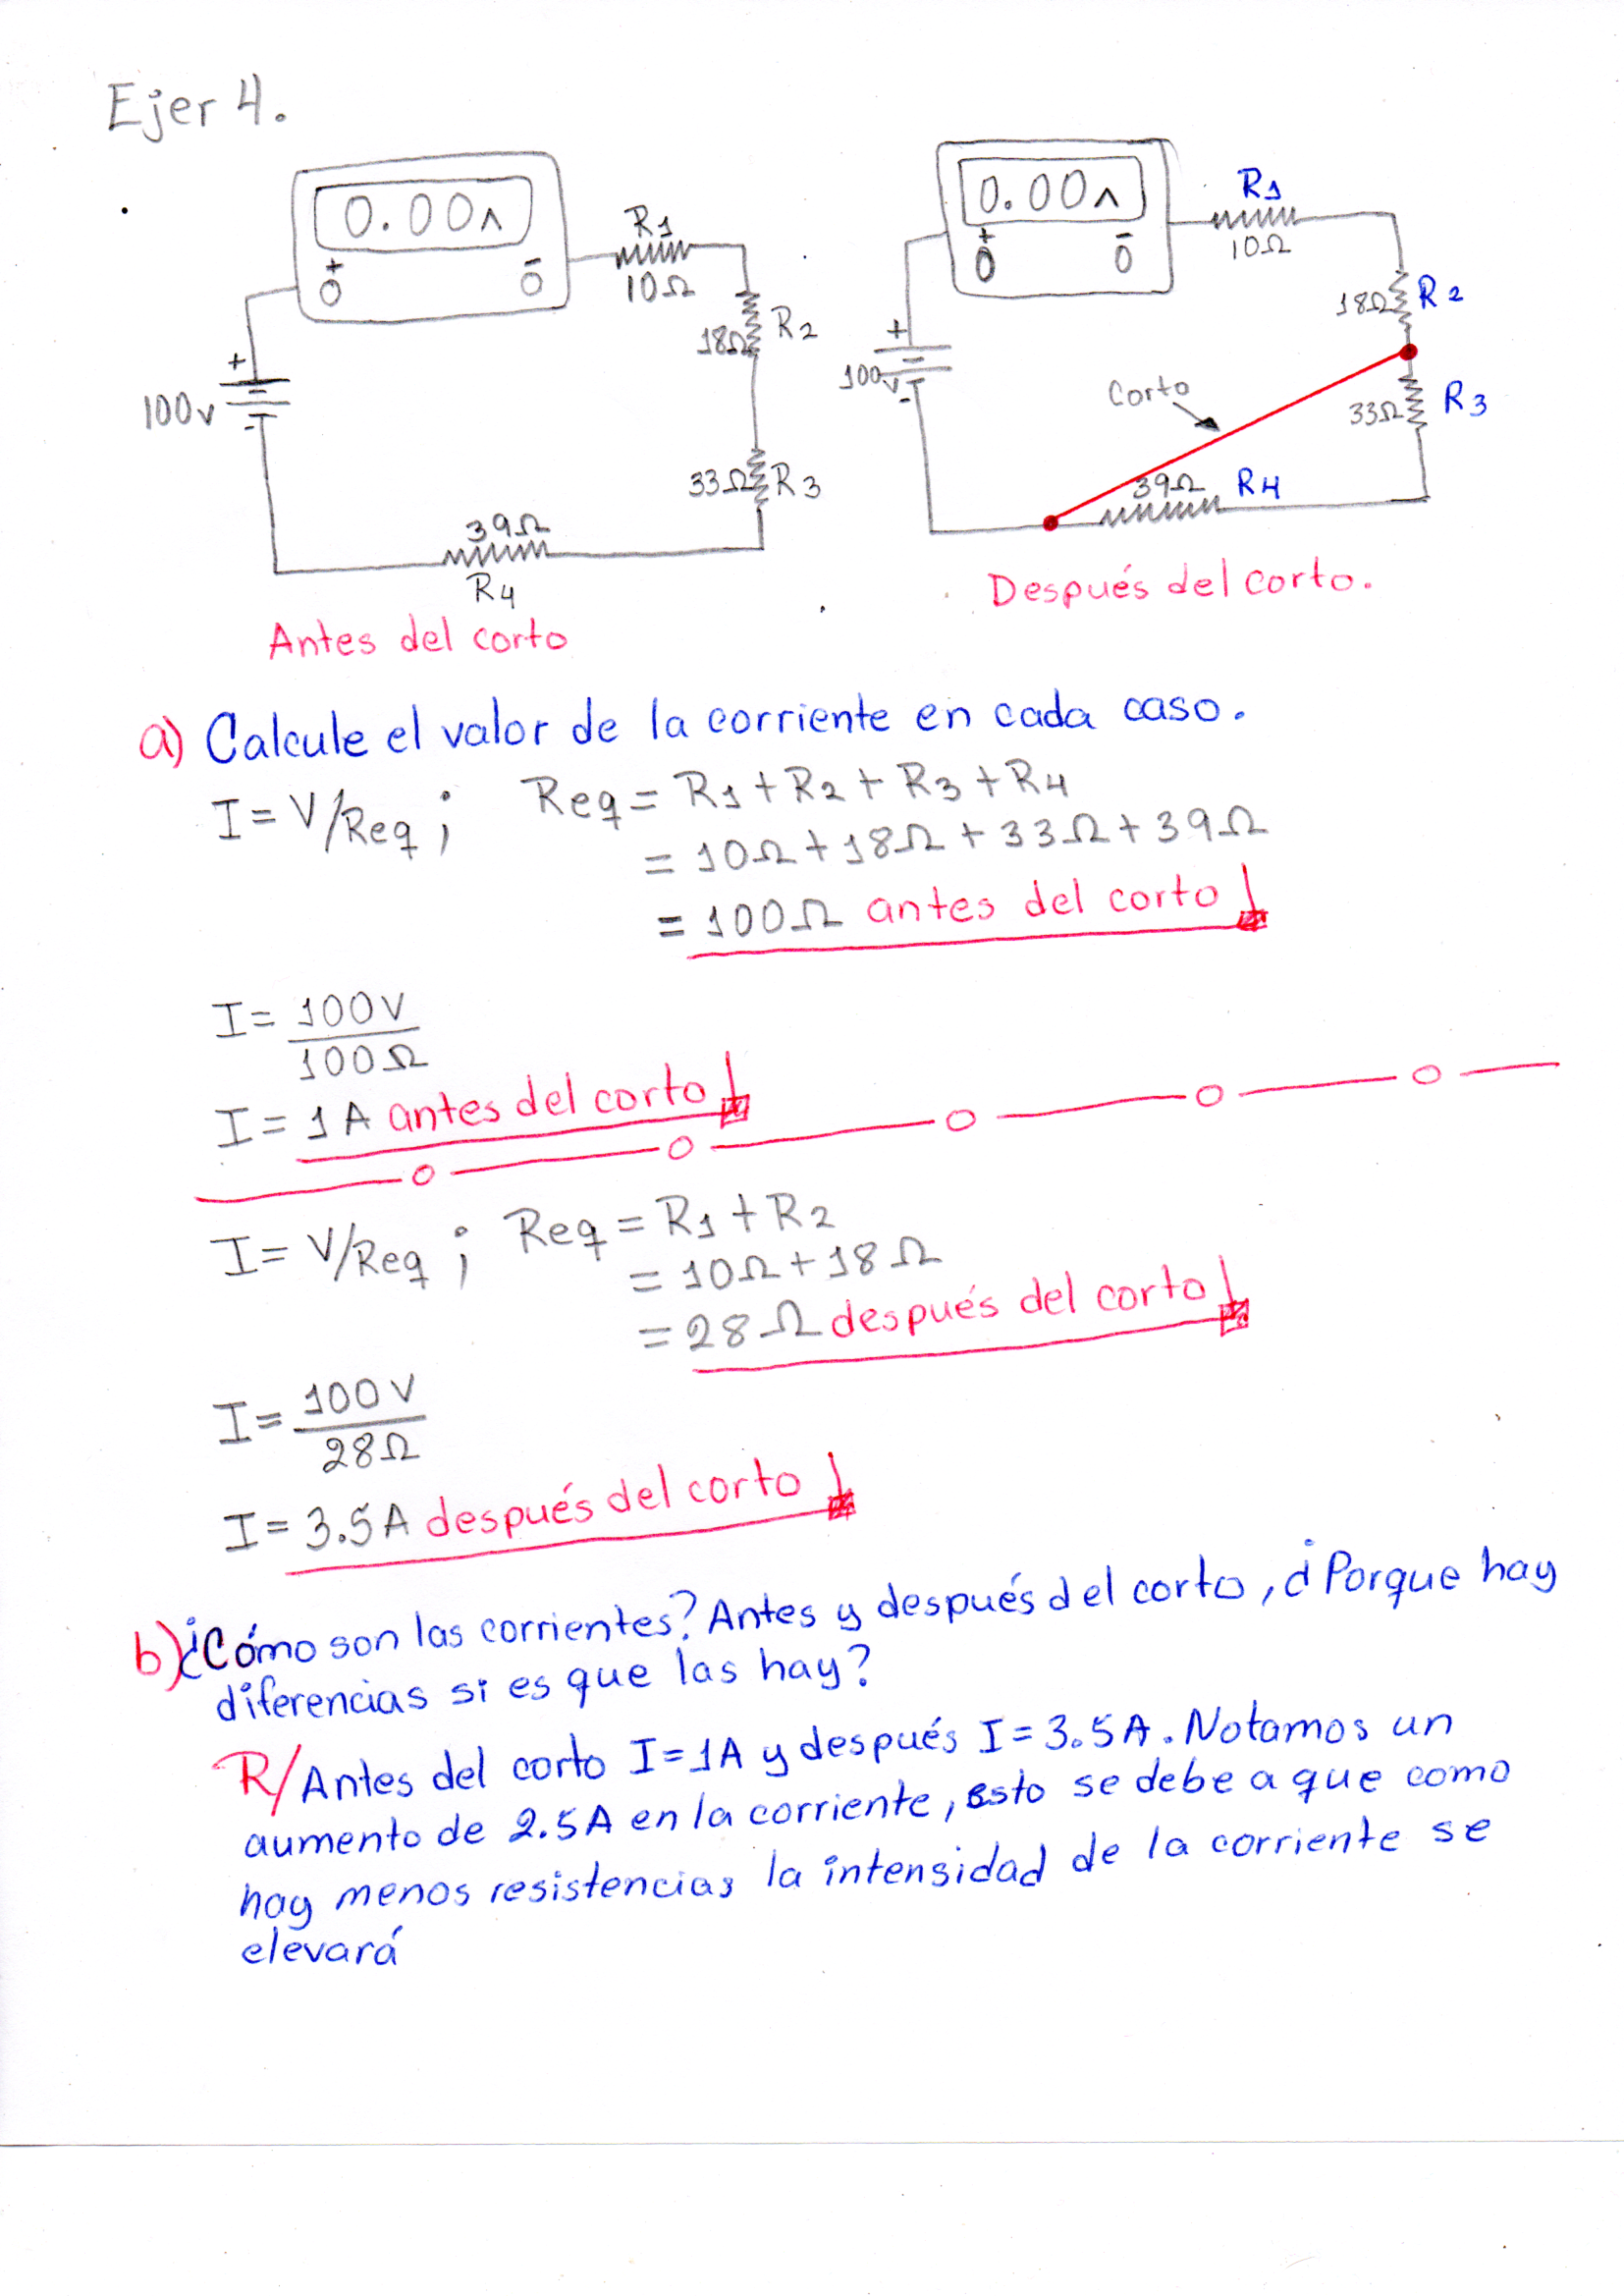 Ejer 4.
0.00A
+
-
R1
10Ω
18Ω R2
+
100v
-
33Ω R3
39Ω
R4
Antes del corto
0.00A
+
-
R1
10Ω
18Ω R2
+
100v
-
Corto
33Ω R3
39Ω R4
Después del corto.
a) Calcule el valor de la corriente en cada caso.
I = V/Req ; Req = R1 + R2 + R3 + R4
= 10Ω + 18Ω + 33Ω + 39Ω
= 100Ω antes del corto
I = 100V
100Ω
I = 1 A antes del corto
I = V/Req ; Req = R1 + R2
= 10Ω + 18Ω
= 28Ω después del corto
I = 100V
28Ω
I = 3.5A después del corto
b) ¿Cómo son las corrientes? Antes y después del corto, ¿Porque hay
diferencias si es que las hay?
R/ Antes del corto I = 1A y después I = 3.5A. Notamos un
aumento de 2.5A en la corriente, esto se debe a que como
hay menos resistencias la intensidad de la corriente se
elevará